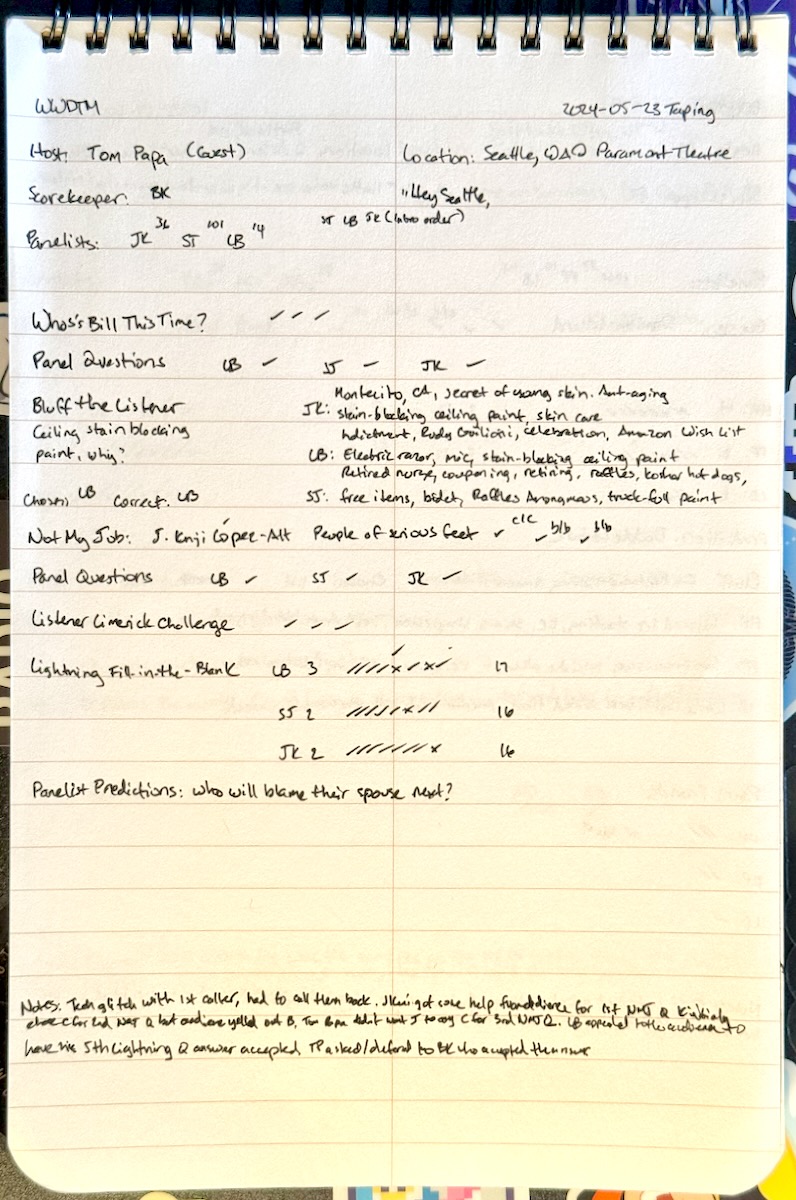 WWDTM 2024-05-23 Taping
Host: Tom Papa (Guest) Location: Seattle, WA @ Paramount Theatre
Scorekeeper: BK "Hey Seattle,
ST LB JK (intro order)
Panelists: JK 36 ST 101 LB '4
Who's Bill This Time? ✓ ✓ ✓
Panel Questions LB ✓ ST ✓ JK ✓
Montecito, CA, secret of young skin. Anti-aging
Bluff the Listener JK: stain-blocking ceiling paint, skin care
Ceiling stain blocking indictment, Rudy Guiliani, celebration, Amazon Wish List
paint, why? LB: Electric razor, mic, stain-blocking ceiling paint
Retired nurse, couponing, retiring, raffles, kosher hot dogs,
Chosen: LB Correct: LB ST: free items, bidet, Raffles Anonymous, truck-full paint
Not My Job: J. Kenji López-Alt People of serious feet ✓ c/c ✓ b/b ✓ b/b
Panel Questions LB ✓ ST ✓ JK ✓
Listener Limerick Challenge ✓ ✓ ✓
Lightning Fill-in-the-Blank LB 3 ////x/x/ 17
ST 2 /////x// 16
JK 2 ///////x 16
Panelist Predictions: who will blame their spouse next?
Notes: Tech glitch with 1st caller, had to call them back. Kenji got some help from audience for 1st NMJ Q. Kinjially
chose C for 2nd NMJ Q but audience yelled out B, Tom Papa didn't want J to say C for 3rd NMJ Q. LB appealed to the audience to
have his 5th Lightning Q answer accepted TP asked/deferred to BK who accepted the answer